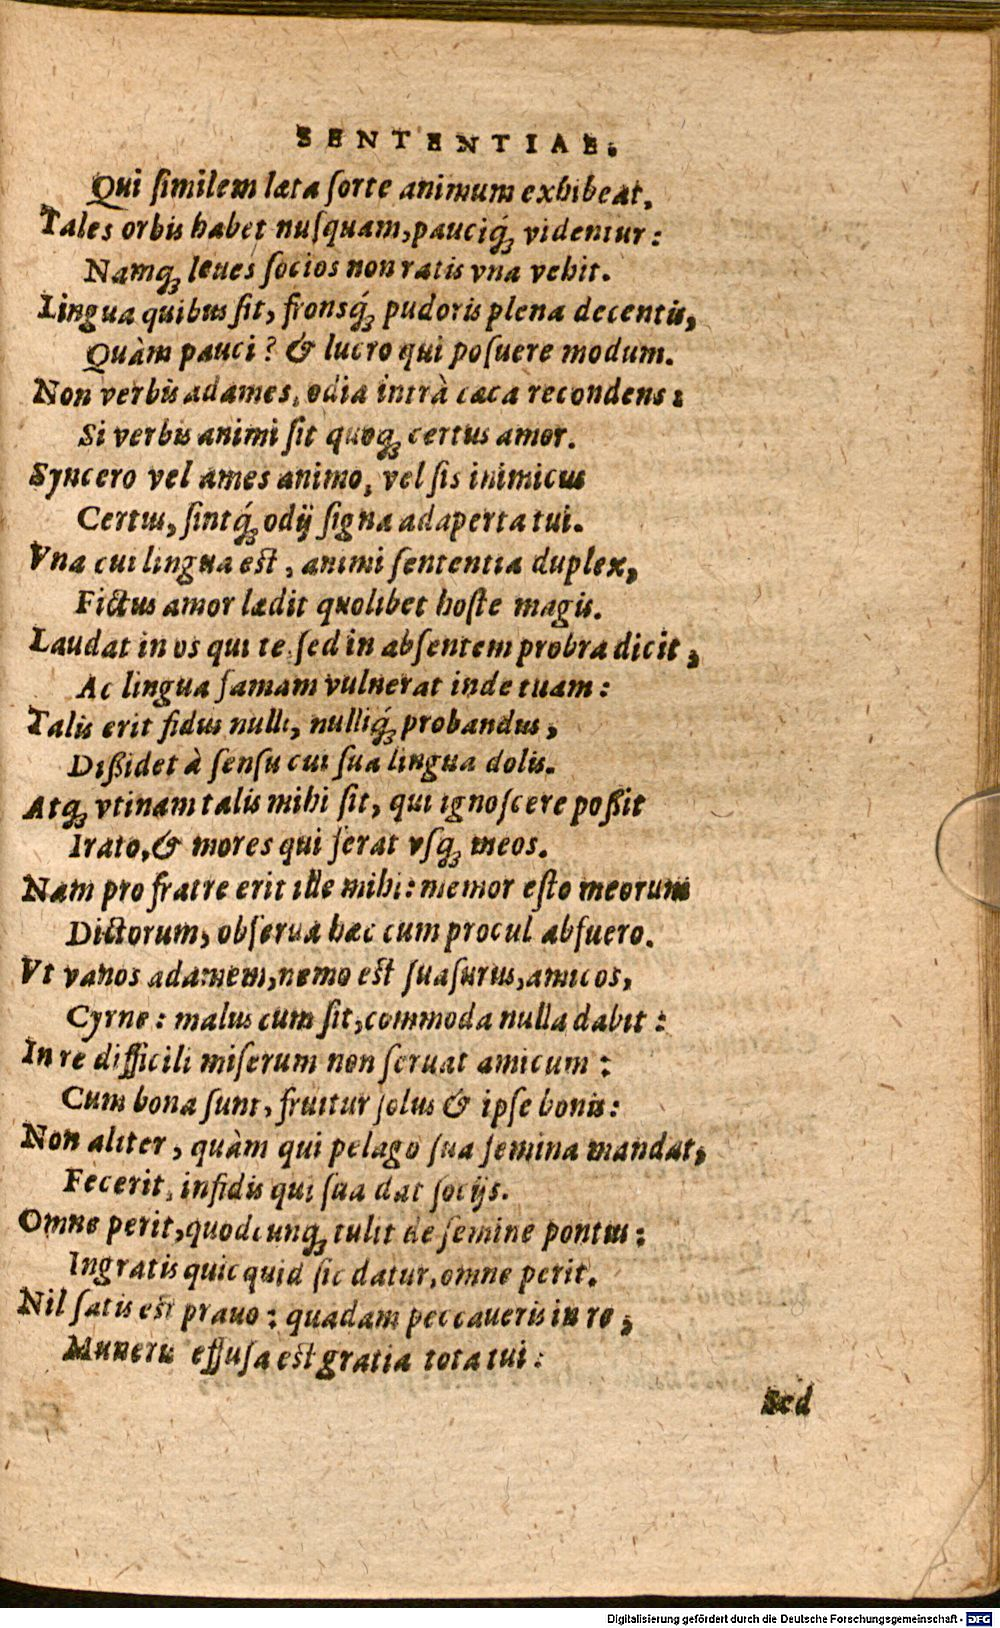 SENTENTIAE.
Qui ſimilem læta ſorte animum exhibeat,
Tales orbis habet nuſquam, pauciq́ꝫ videntur:
Namqꝫ leues ſocios non ratis vna vehit.
Lingua quibus ſit, fronsq́ꝫ pudoris plena decentis,
Quàm pauci? & lucro qui poſuere modum.
Non verbis adames, odia intrà cæca recondens:
Si verbis animi ſit quoqꝫ certus amor.
Syncero vel ames animo, vel ſis inimicus
Certus, ſintq́ꝫ odij ſigna adaperta tui.
Vna cui lingua est, animi ſententia duplex,
Fictus amor lædit quolibet hoſte magis.
Laudat in os qui te ſed in abſentem probra dicit,
Ac lingua famam vulnerat inde tuam:
Talis erit fidus nulli, nulliq́ꝫ probandus,
Dißidet à ſenſu cui ſua lingua dolis.
Atqꝫ vtinam talis mihi ſit, qui ignoſcere poßit
Irato, & mores qui ferat vſqꝫ meos.
Nam pro fratre erit ille mihi: memor eſto meorum
Dictorum, obſerua hæc cum procul abfuero.
Vt vanos adamem, nemo est ſuaſurus, amicos,
Cyrne: malus cum ſit, commoda nulla dabit:
In re difficili miſerum non ſeruat amicum:
Cum bona ſunt, fruitur ſolus & ipſe bonis:
Non aliter, quàm qui pelago ſua ſemina mandat,
Fecerit, infidis qui ſua dat ſocijs.
Omne perit, quodcunqꝫ tulit de ſemine pontus:
Ingratis quicquid ſic datur, omne perit.
Nil ſatis est prauo: quadam peccaueris in re,
Muneris effuſa est gratia tota tui:
Sed
Digitalisierung gefördert durch die Deutsche Forschungsgemeinschaft - DFG